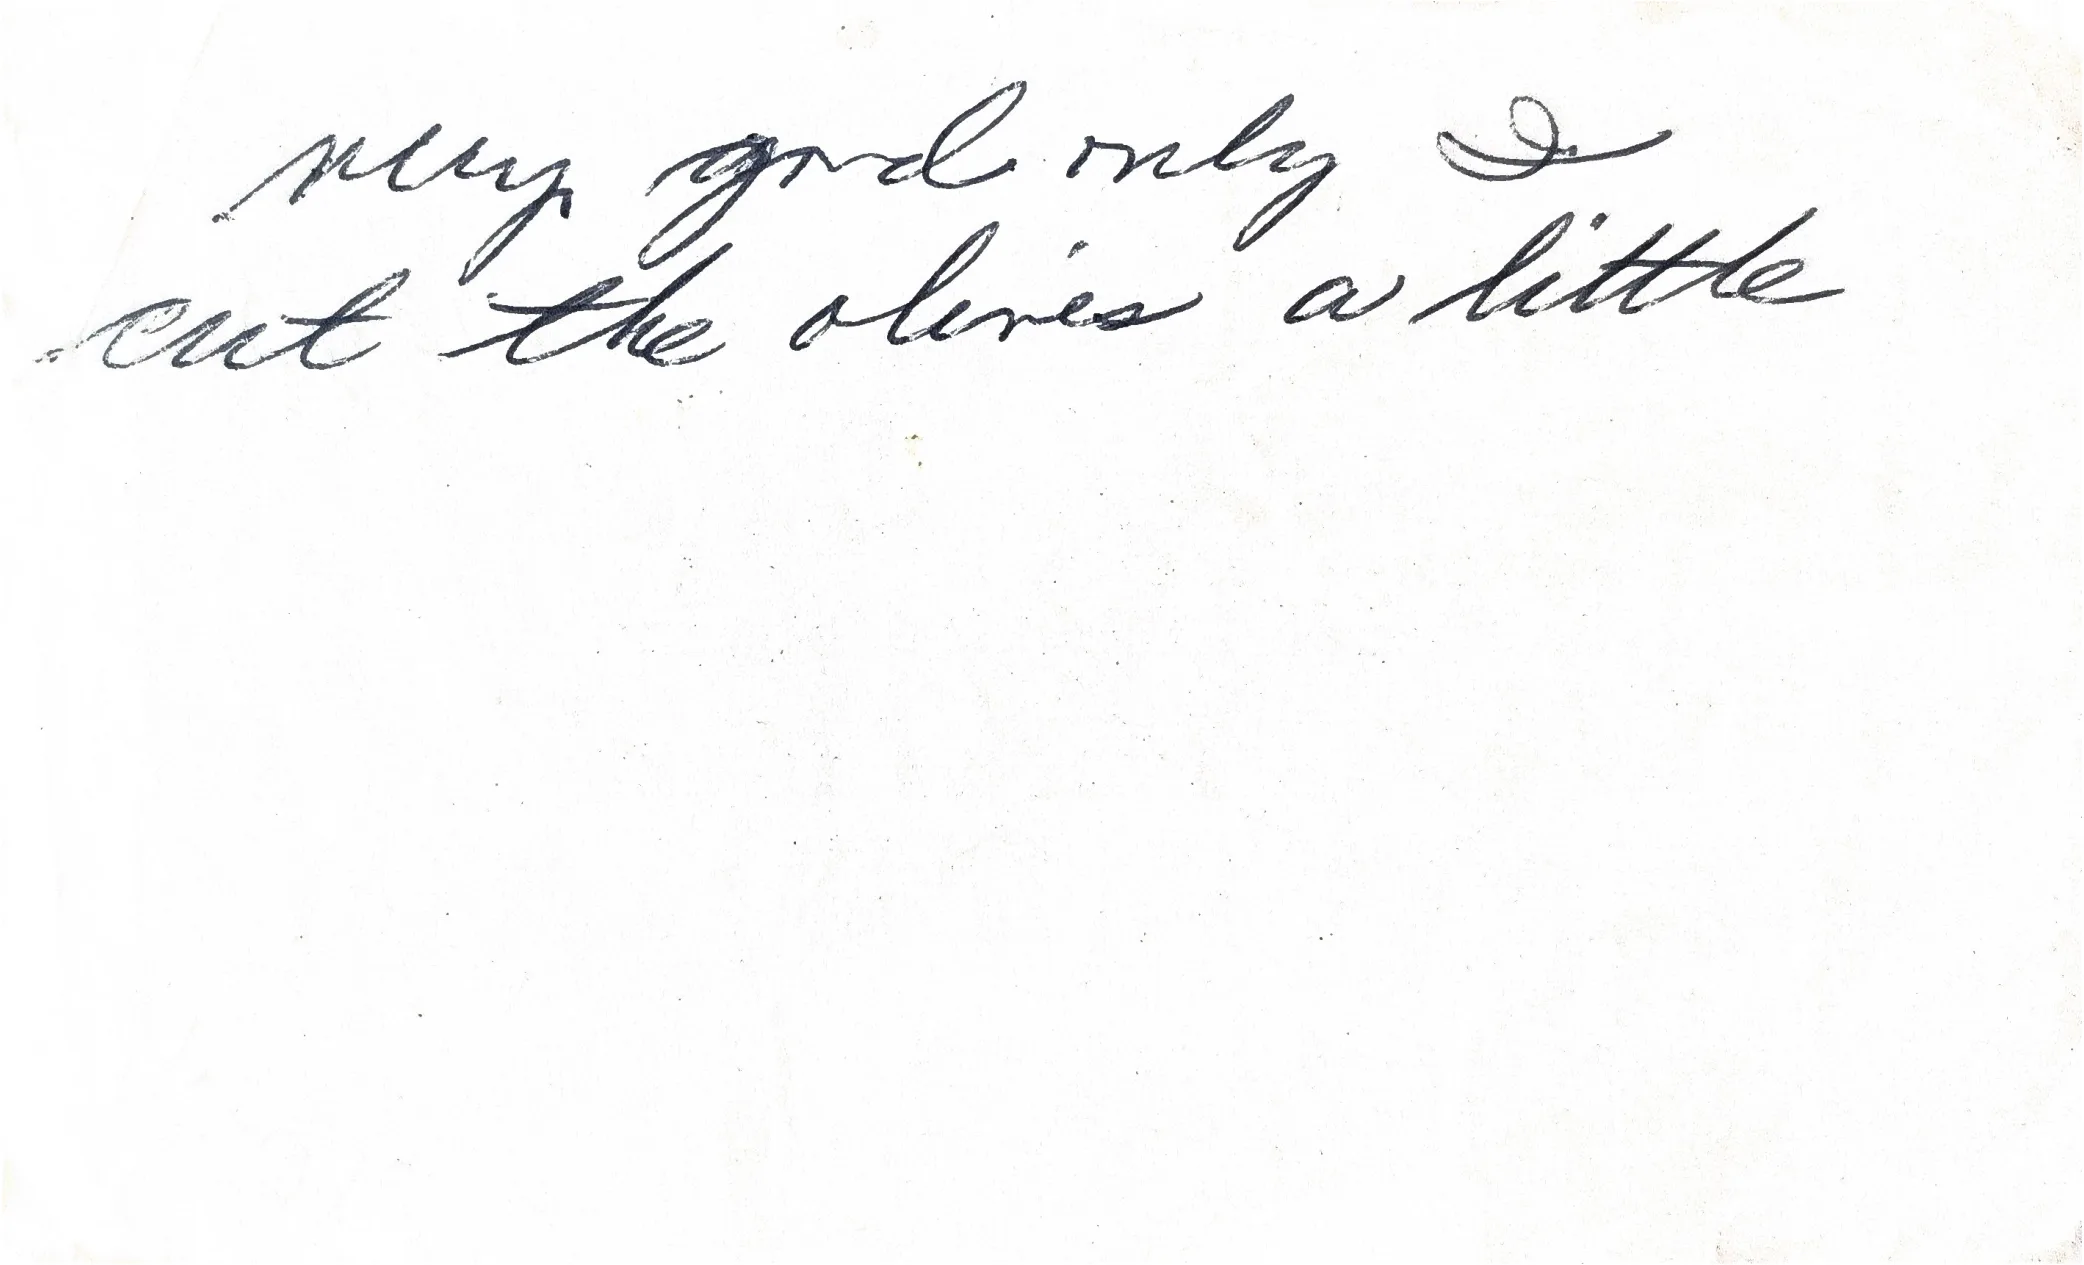 very good only I
cut the olives a little